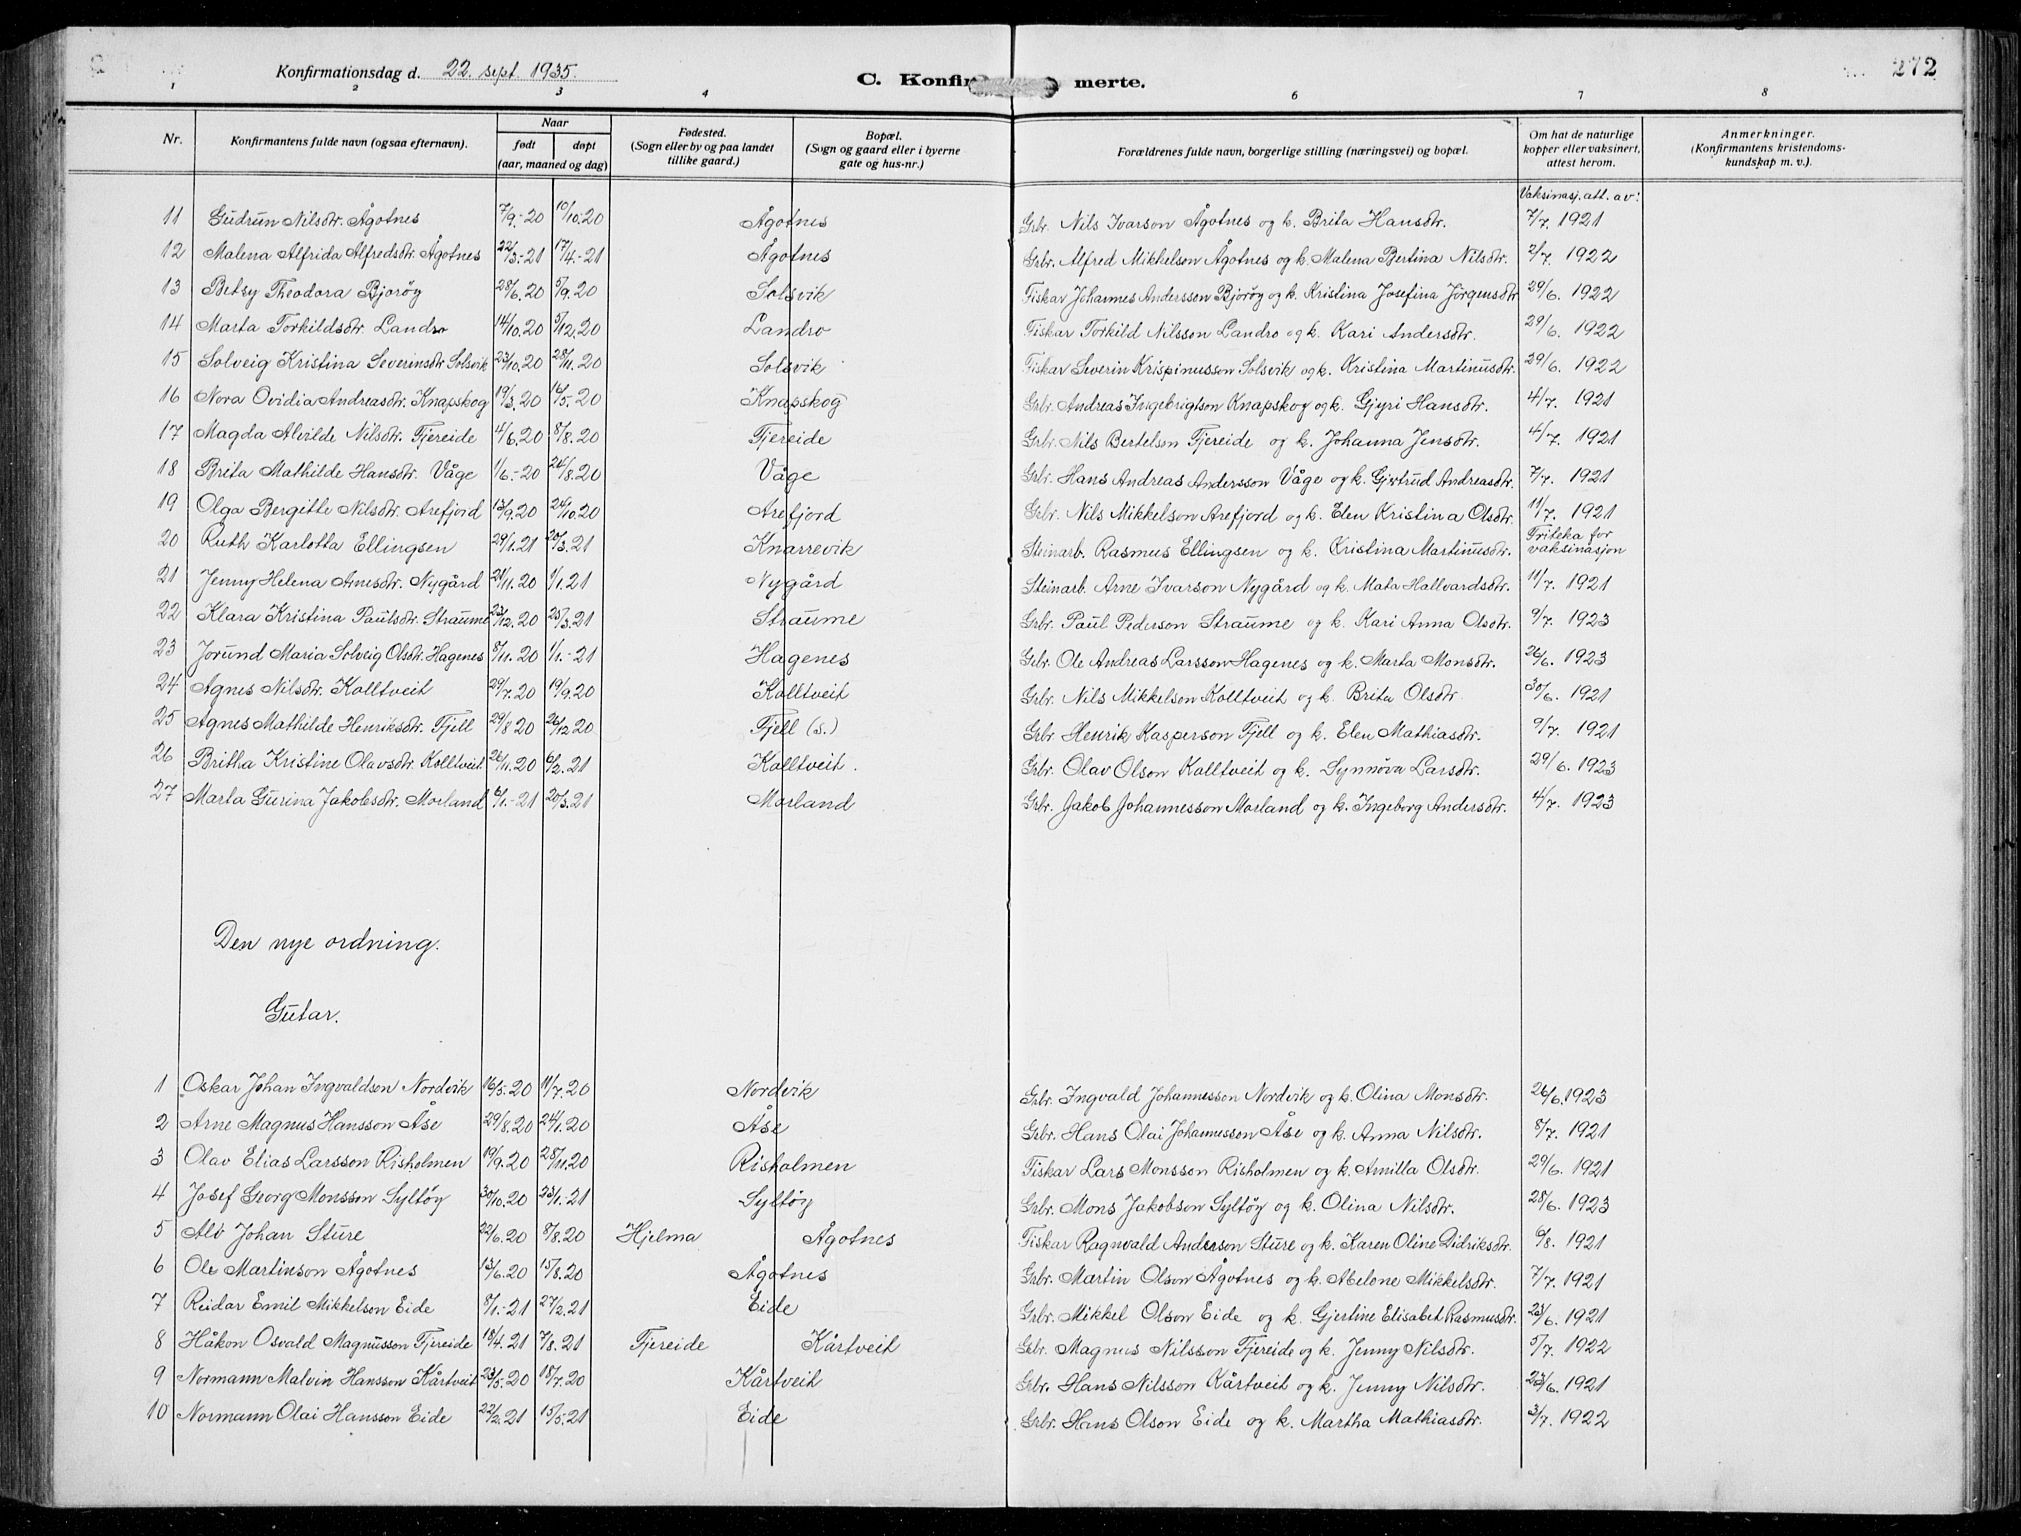 Konfirmationsdag d. 22. sept. 1935.
C. Konfir merte.
272
1 2 3 4 6 7 8
Nr.
Konfirmantens fulde navn (ogsaa efternavn).
Naar
født døpt
(aar, maaned og dag)
Fødested.
(Sogn eller by og paa landet
tillike gaard.)
Bopæl.
(Sogn og gaard eller i byerne
gate og hus-nr.)
Forældrenes fulde navn, borgerlige stilling (næringsvei) og bopæl.
Om hat de naturlige
kopper eller vaksinert,
attest herom.
Anmerkninger.
(Konfirmantens kristendoms-
kundskap m. v.).
Vaksinasj. att. av:
11 Gudrun Nilsdtr. Ågotnes 7/9.-20 10/10.20 Ågotnes Grbr. Nils Ivarson Ågotnes og k. Brita Hansdtr. 7/7. 1921
12 Malena Alfrida Alfredsdtr. Ågotnes 22/3.-21 17/4.-21 Ågotnes Grbr. Alfred Mikkelson Ågotnes og k. Malena Bertina Nilsdtr. 2/7. 1922
13 Betsy Theodora Bjorøy 28/6.20 5/9.20 Solsvik Fiskar Johannes Anderssen Bjorøy og k. Kristina Josefina Jörgensdtr. 29/6. 1922
14 Marta Torkildsdtr. Landro 14/10.20 5/12.20 Landro Fiskar Torkild Nilsson Landro og k. Kari Andersdtr. 29/6. 1922
15 Solveig Kristina Severinsdtr. Solsvik 23/10.20 28/11.20 Solsvik Fiskar Severin Krispinusson Solsvik og k. Kristina Martinusdtr. 29/6. 1922
16 Nora Ovidia Andreasdtr. Knapskog 19/3.20 16/5.20 Knapskog Grbr. Andreas Ingebrigtson Knapskog og k. Gjyri Hansdtr. 4/7. 1921
17 Magda Alvilde Nilsdtr. Fjereide 4/6.20 8/8.20 Fjereide Grbr. Nils Bertelson Fjereide og k. Johanna Jensdtr. 4/7. 1921
18 Brita Mathilde Hansdtr. Våge 1/6.-20 24/8.20 Våge Grbr. Hans Andreas Andersson Våge og k. Gjertrud Andreasdtr. 7/7. 1921
19 Olga Bergitte Nilsdtr. Arefjord 13/9.20 24/10.20 Arefjord Grbr. Nils Mikkelson Arefjord og k. Elen Kristina Olsdtr. 11/7. 1921
20 Ruth Karlotta Ellingsen 29/1.21 20/3.21 Knarrevik Steinarb. Rasmus Ellingsen og k. Kristina Martinusdtr. Friteka for vaksinasjon
21 Jenny Helena Arnesdtr. Nygård 21/11.20 1/1.21 Nygård Steinarb. Arne Ivarson Nygård og k. Mata Hallvardsdtr. 11/7. 1921
22 Klara Kristina Paulsdtr. Straume 23/12.20 25/3.21 Straume Grbr. Paul Pederson Straume og k. Kari Anna Olsdtr. 9/7. 1923
23 Jorund Maria Solveig Olsdtr. Hagenes 8/11.20 1/1.-21 Hagenes Grbr. Ole Andreas Larsson Hagenes og k. Marta Monsdtr. 26/6. 1923
24 Agnes Nilsdtr. Kolltveit 29/7.20 19/9.20 Kolltveit Grbr. Nils Mikkelson Kolltveit og k. Brita Olsdtr. 30/6. 1921
25 Agnes Mathilde Henriksdtr. Fjell 29/8 20 26/12.20 Fjell (s.) Grbr. Henrik Kasperson Fjell og k. Elen Mathiasdtr. 9/7. 1921
26 Britha Kristine Olavsdtr. Kolltveit 26/11.20 6/2.21 Kolltveit. Grbr. Olav Olson Kolltveit og k. Synnøva Larsdtr. 29/6. 1923
27 Marta Gurina Jakobsdtr. Morland 6/1.-21 20/3.21 Morland Grbr. Jakob Johannesson Morland og k. Ingeborg Andersdtr. 4/7. 1923
Den nye ordning.
Gutar.
1 Oskar Johan Ingvaldson Nordvik 16/5.20 11/7.20 Nordvik Grbr. Ingvald Johannesson Nordvik og k. Olina Monsdtr. 26/6. 1923
2 Arne Magnus Hansson Åse 29/8.20 24/1.20 Åse Grbr. Hans Olai Johannesson Åse og k. Anna Nilsdtr. 8/7. 1921
3 Olav Elias Larsson Risholmen 19/9.20 28/11.20 Risholmen Fiskar Lars Monsson Risholmen og k. Amilla Olsdtr. 29/6. 1921
4 Josef Georg Monsson Syltøy 30/10.20 23/1.21 Syltøy Grbr. Mons Jakobson Syltøy og k. Olina Nilsdtr. 28/6. 1923
5 Alv Johan Sture 22/6.20 8/8.20 Hjelma Ågotnes Fiskar Ragnvald Anderson Sture og k. Karen Oline Didriksdtr. 6/8. 1921
6 Ole Martinson Ågotnes 13/6.20 15/8.20 Ågotnes Grbr. Martin Olson Ågotnes og k. Abelone Mikkelsdtr. 7/7. 1921
7 Reidar Emil Mikkelson Eide 8/1.-21 27/2.21 Eide Grbr. Mikkel Olson Eide og k. Gjertine Elisabet Rasmusdtr. 23/6. 1921
8 Håkon Osvald Magnusson Fjereide 18/4.21 7/8.21 Fjereide Kårtveit Grbr. Magnus Nilsson Fjereide og k. Jenny Nilsdtr. 5/7. 1922
9 Normann Malvin Hansson Kårtveit 23/5.20 18/7.20 Kårtveit Grbr. Hans Nilsson Kårtveit og k. Jenny Nilsdtr. 23/6. 1921
10 Normann Olai Hansson Eide 22/2.21 15/5.21 Eide Grbr. Hans Olson Eide og k. Martha Mathiasdtr. 3/7. 1922